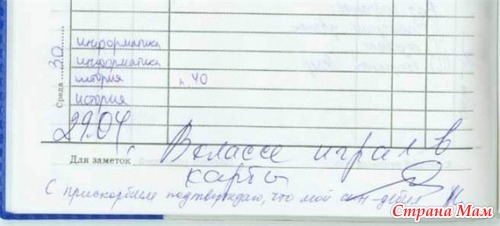 Среда ....... 30
информатика
информатика
история п. 40
история
29.04.
Для заметок В классе играл в
карты
С прискорбием подтверждаю, что мой сын - дебил
Страна Мам